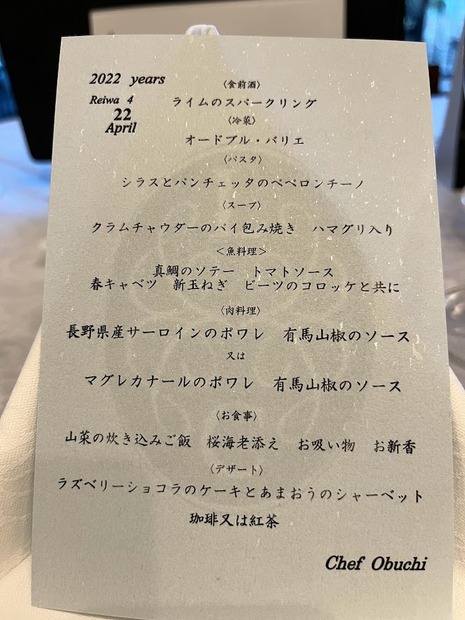 2022 years
Reiwa 4
22
April
〈食前酒〉
ライムのスパークリング
〈冷菜〉
オードブル・バリエ
〈パスタ〉
シラスとパンチェッタのペペロンチーノ
〈スープ〉
クラムチャウダーのパイ包み焼き　ハマグリ入り
＜魚料理＞
真鯛のソテー　トマトソース
春キャベツ　新玉ねぎ　ビーツのコロッケと共に
〈肉料理〉
長野県産サーロインのポワレ　有馬山椒のソース
又は
マグレカナールのポワレ　有馬山椒のソース
〈お食事〉
山菜の炊き込みご飯　桜海老添え　お吸い物　お新香
〈デザート〉
ラズベリーショコラのケーキとあまおうのシャーベット
珈琲又は紅茶
Chef Obuchi